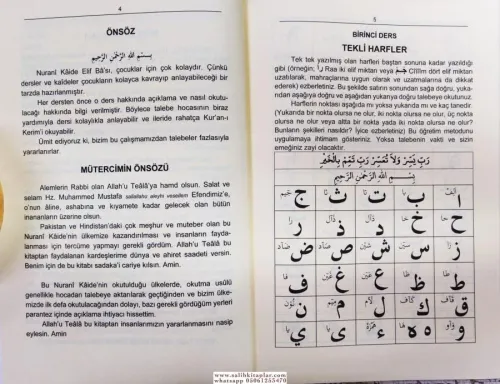 4
ÖNSÖZ
بِسْمِ اللّٰهِ الرَّحْمٰنِ الرَّحِيْمِ
Nuranî Kâide Elif Bâ'sı, çocuklar için çok kolaydır. Çünkü
dersler ve kaideler çocukların kolayca kavrayıp anlayabileceği bir
tarzda hazırlanmıştır.
Her dersten önce o ders hakkında açıklama ve nasıl okutu-
lacağı hakkında bilgi verilmiştir. Böylece talebe hocasının biraz
yardımıyla dersi kolaylıkla anlayabilir ve ileride rahatça Kur'an-ı
Kerim'i okuyabilir.
Ümit ediyoruz ki, bizim bu çalışmamızdan talebeler fazlasıyla
yararlanırlar.
MÜTERCİMİN ÖNSÖZÜ
Alemlerin Rabbi olan Allah'u Teâlâ'ya hamd olsun. Salat ve
selam Hz. Muhammed Mustafa sallallahu aleyhi vesellem Efendimiz'e,
o'nun âline, ashabına ve kıyamete kadar gelecek olan bütün
inananların üzerine olsun.
Pakistan ve Hindistan'daki çok meşhur ve muteber olan bu
Nuranî Kâide'nin ülkemize kazandırılması ve insanların fayda-
lanması için tercüme yapmayı gerekli gördüm. Allah'u Teâlâ bu
kitaptan faydalanan kardeşlerime dünya ve ahiret saadeti versin.
Benim için de bu kitabı sadaka'i cariye kılsın. Amin.
Bu Nuranî Kâide'nin okutulduğu ülkelerde, okutma usûlü
genellikle hocadan talebeye aktarılarak geçtiğinden ve bizim ülke-
mizde ilk defa okutulacağından dolayı, bazı gerekli gördüğüm yerleri
parantez içinde açıklama ihtiyacı hissettim.
Allah'u Teâlâ bu kitaptan insanlarımızın yararlanmasını nasip
eylesin. Amin
5
BİRİNCİ DERS
TEKLİ HARFLER
Tek tek yazılmış olan harfleri baştan sonuna kadar yazıldığı
gibi (örneğin; را Raa iki elif miktarı veya جيم Cîîîm dört elif miktarı
uzatılarak, mahraçlarına uygun olarak ve uzatmalarına da dikkat
ederek) ezberletiniz. Bu şekilde satırın sonundan sağa doğru, yuka-
rıdan aşağıya doğru ve aşağıdan yukarıya doğru talebeye okutunuz.
Harflerin noktaları aşağıda mı yoksa yukarıda mı ve kaç tanedir.
(Yukarıda bir nokta olursa ne olur, iki nokta olursa ne olur, üç nokta
olursa ne olur veya altta bir nokta yada iki nokta olursa ne olur?
Bunların şekilleri nasıldır? İyice ezberletiniz) Bu öğretim metodunu
uygulamaya ihtimam gösteriniz. Yoksa talebenin vakti ve sizin
emeğiniz zayi olacaktır.
رَبِّ يَسِّرْ وَلَا تُعَسِّرْ رَبِّ تَمِّمْ بِالْخَيْرِ
بِسْمِ اللّٰهِ الرَّحْمٰنِ الرَّحِيْمِ
ا ب ت ث ج
ح خ د ذ ر
ز س ش ص ض
ط ظ ع غ ف
ق ك ل م ن
و ه ه ء ى ي
www.salihkitaplar.com
whatsapp 05061255470